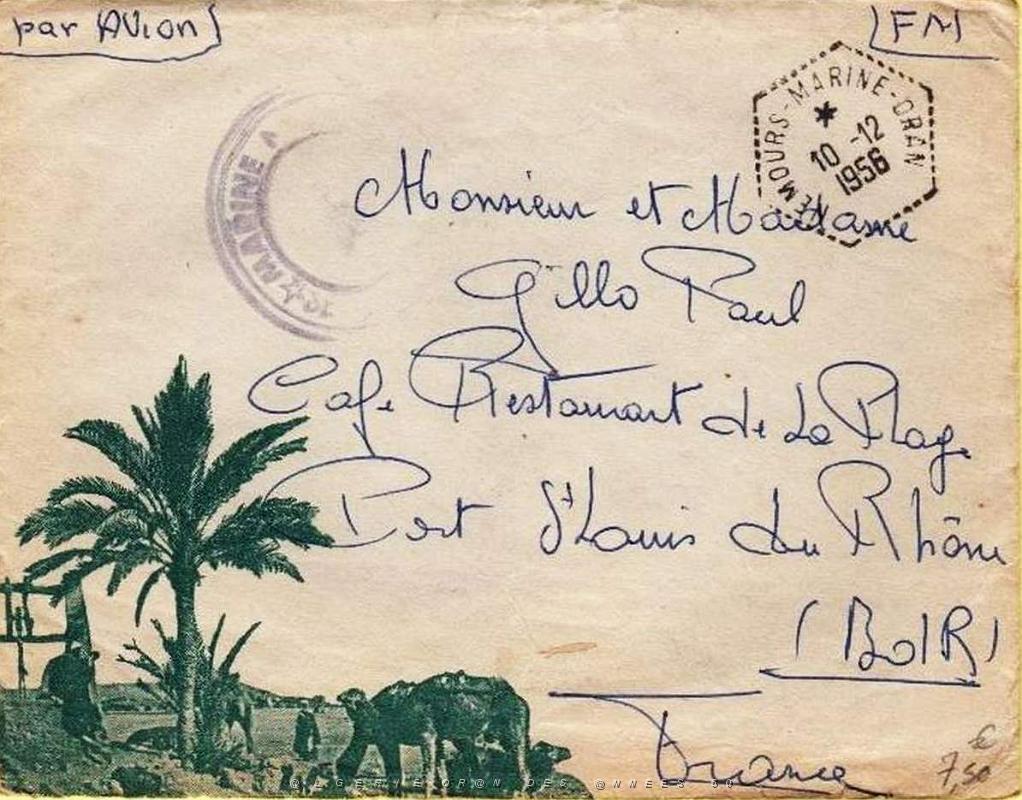 par Avion
FM
NEMOURS-MARINE-ORAN
10-12
1956
MARINE
Monsieur et Madame
Gillo Paul
Café Restaurant de La Plage
Port St Louis du Rhône
(BdR)
France
€
7,50
@LGERIE OR@N DES @NNEES 50